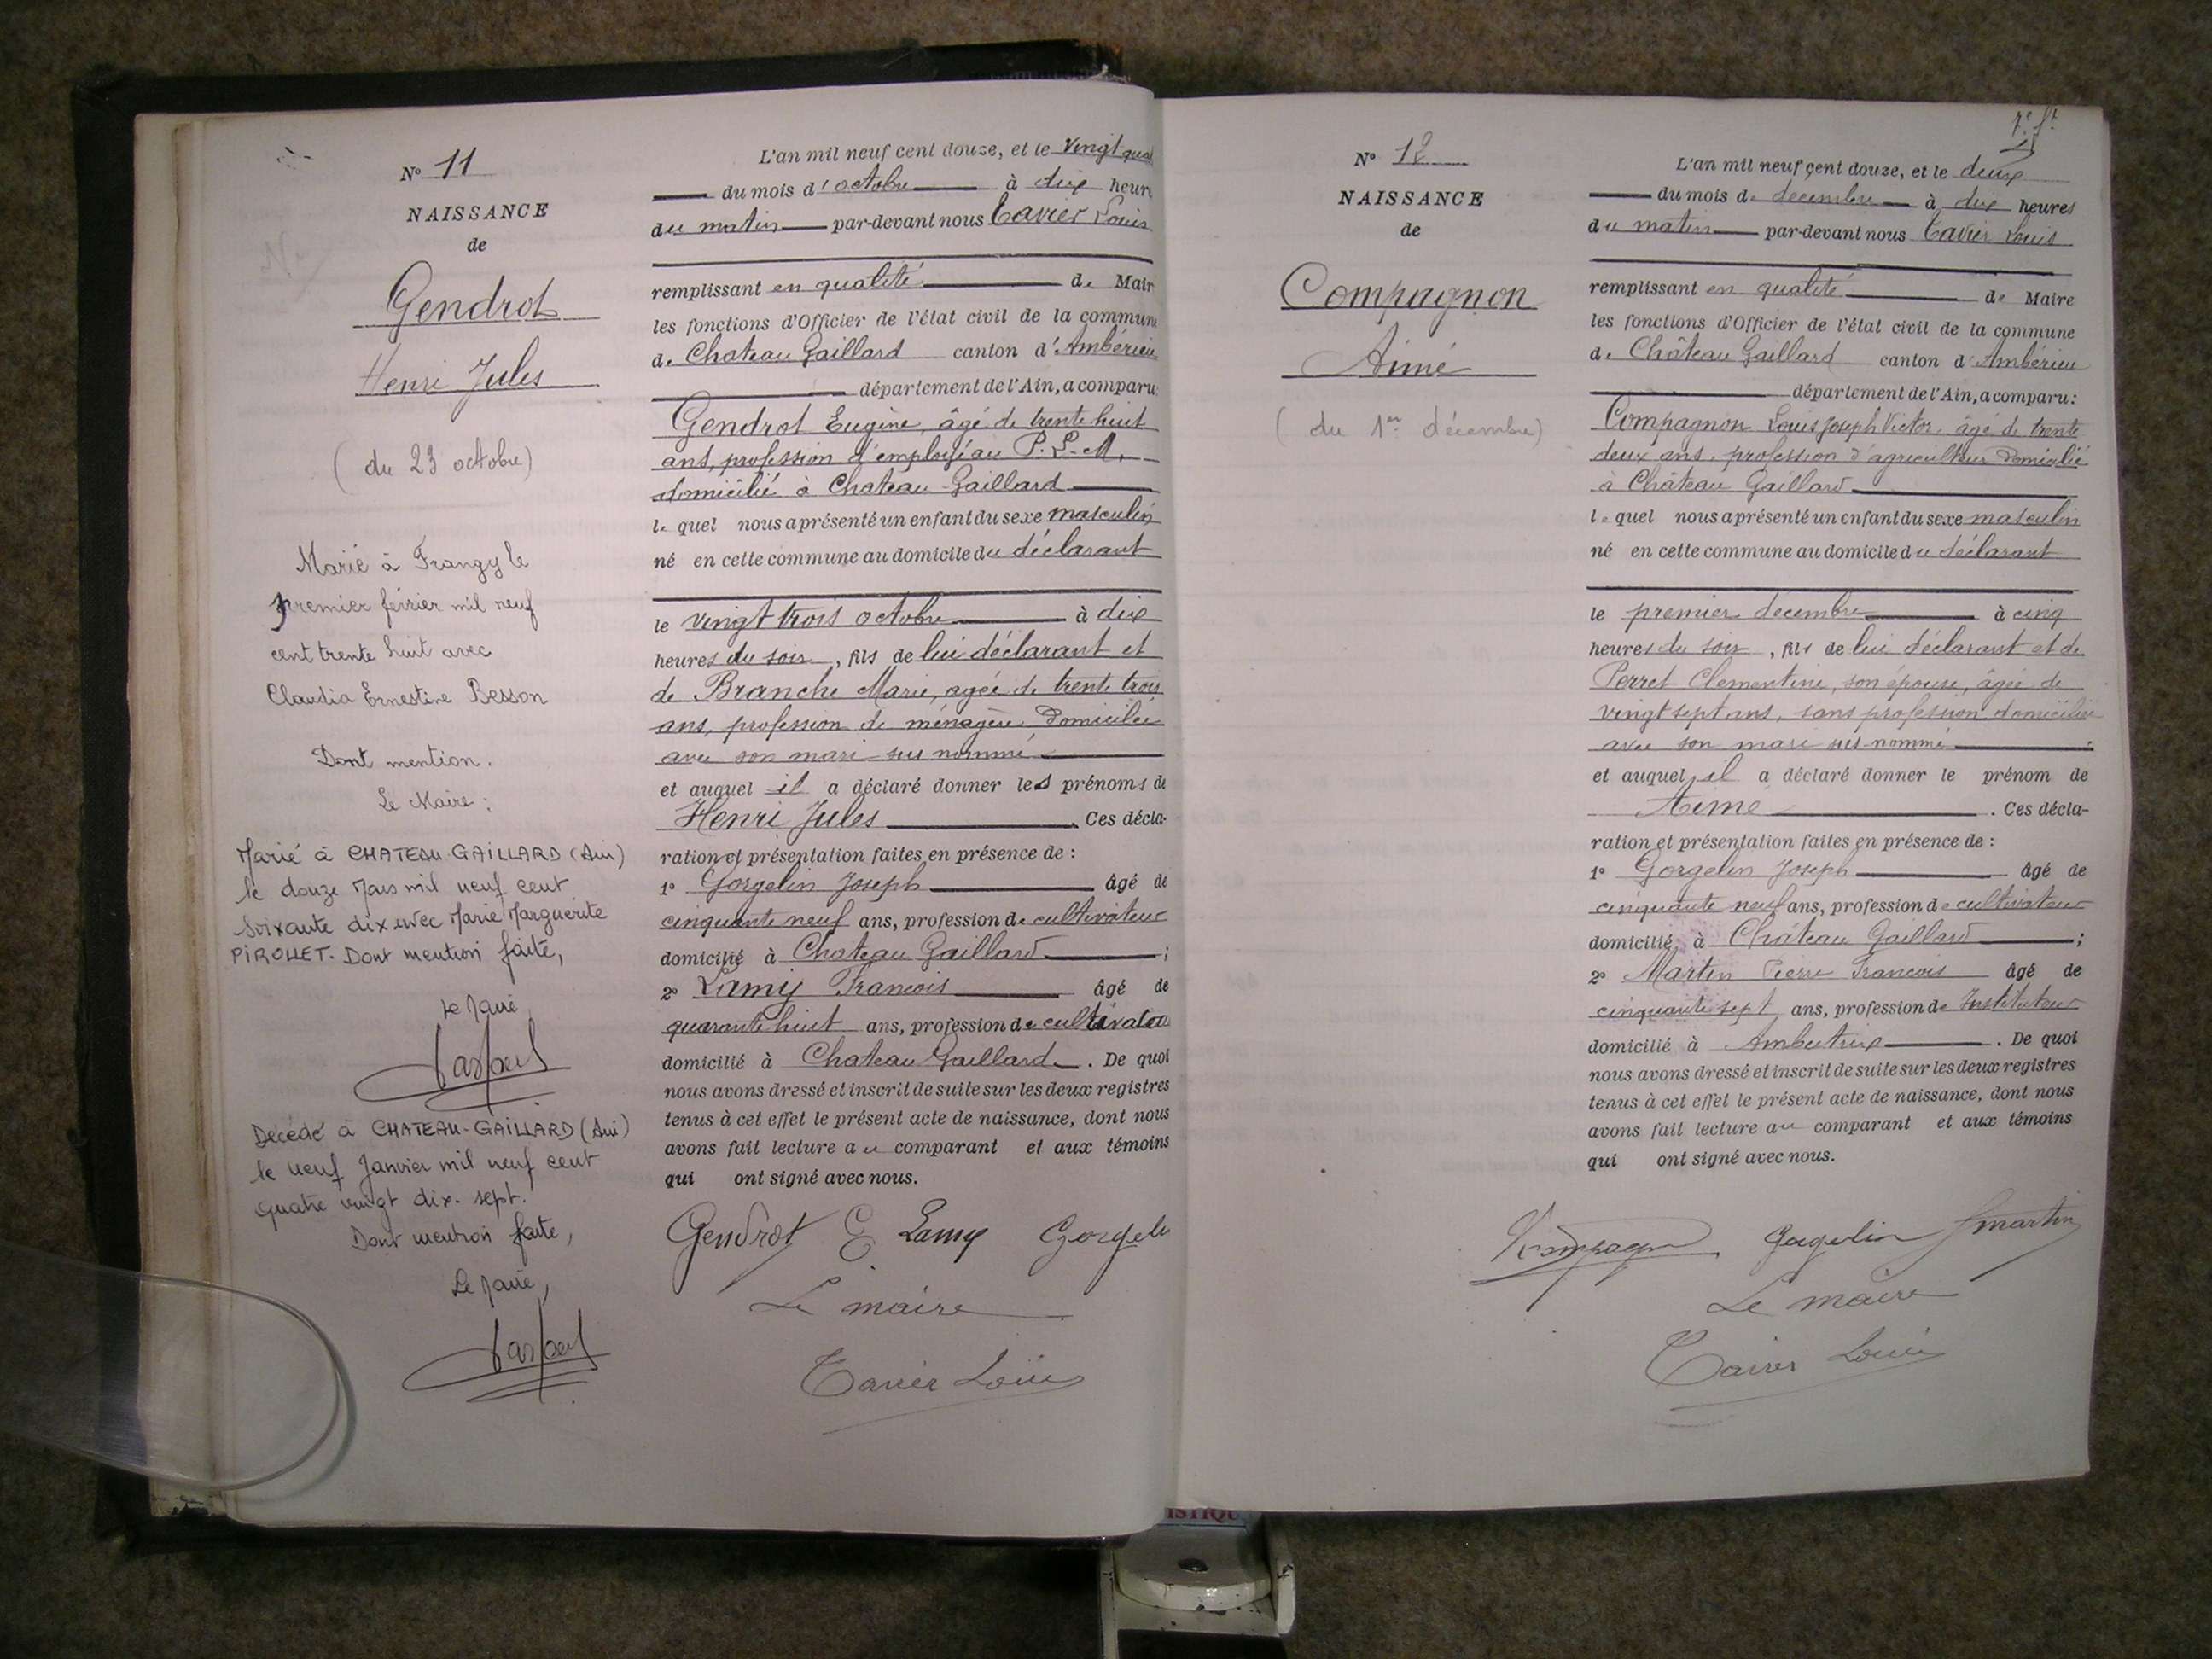 N° 11
NAISSANCE
de
Gendrot
Henri Jules
( du 23 octobre)
Marié à Frangy le
premier février mil neuf
cent trente huit avec
Claudia Ernestine Besson
Dont mention.
Le Maire :
Marié à CHATEAU-GAILLARD (Ain)
le douze Mars mil neuf cent
Soixante dix avec Marie Marguerite
PIROLLET. Dont mention faite,
Le Maire
Décédé à CHATEAU-GAILLARD (Ain)
le neuf Janvier mil neuf cent
quatre vingt dix-sept.
Dont mention faite,
Le Maire,
L'an mil neuf cent douze, et le vingt qua
du mois d'octobre à dix heure
du matin par-devant nous Tavier Louis
remplissant en qualité de Mair
les fonctions d'Officier de l'état civil de la commune
de Chateau Gaillard canton d'Ambérieu
département de l'Ain, a comparu
Gendrot Eugène, âgé de trente huit
ans, profession d'employé au P.L.M.
domicilié à Chateau-Gaillard
lequel nous a présenté un enfant du sexe masculin
né en cette commune au domicile du déclarant
le vingt trois octobre à dix
heures du soir, fils de lui déclarant et
de Branche Marie, agée de trente trois
ans, profession de ménagère, domiciliée
avec son mari sus nommé
et auquel il a déclaré donner les prénoms de
Henri Jules. Ces décla-
ration et présentation faites en présence de :
1° Gorgelin Joseph âgé de
cinquante neuf ans, profession de cultivateur
domicilié à Chateau Gaillard ;
2° Lamy Francois âgé de
quarante huit ans, profession de cultivateu
domicilié à Chateau Gaillard. De quoi
nous avons dressé et inscrit de suite sur les deux registres
tenus à cet effet le présent acte de naissance, dont nous
avons fait lecture au comparant et aux témoins
qui ont signé avec nous.
Gendrot E. Lamy Gorgeli
Le maire
Tavier Louis
N° 12
NAISSANCE
de
Compagnon
Aimé
( du 1er décembre)
7e ft
L'an mil neuf cent douze, et le deux
du mois de decembre à dix heures
du matin par-devant nous Tavier Louis
remplissant en qualité de Maire
les fonctions d'Officier de l'état civil de la commune
de Château Gaillard canton d'Ambérieu
département de l'Ain, a comparu :
Compagnon Louis Joseph Victor, âgé de trente
deux ans, profession d'agriculteur domicilié
à Château Gaillard
lequel nous a présenté un enfant du sexe masculin
né en cette commune au domicile du déclarant
le premier decembre à cinq
heures du soir, fils de lui déclarant et de
Perret Clementine, son épouse, âgée de
vingt sept ans, sans profession domiciliée
avec son mari sus-nommé ;
et auquel il a déclaré donner le prénom de
Aimé. Ces décla-
ration et présentation faites en présence de :
1° Gorgelin Joseph âgé de
cinquante neuf ans, profession de cultivateur
domicilié à Château Gaillard ;
2° Martin Pierre Francois âgé de
cinquante sept ans, profession de Instituteur
domicilié à Ambutrix. De quoi
nous avons dressé et inscrit de suite sur les deux registres
tenus à cet effet le présent acte de naissance, dont nous
avons fait lecture au comparant et aux témoins
qui ont signé avec nous.
Gorgelin Martin
Le maire
Tavier Louis
ISTIQU